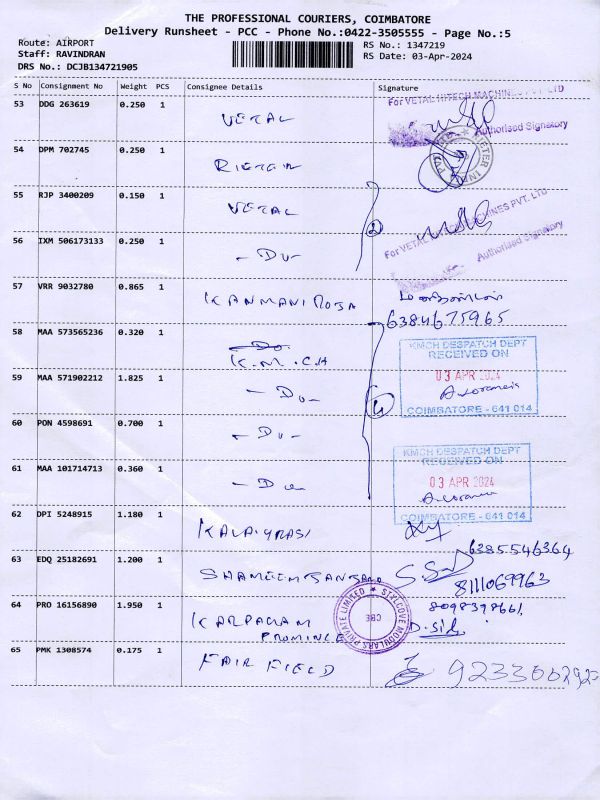 THE PROFESSIONAL COURIERS, COIMBATORE
Delivery Runsheet - PCC - Phone No.:0422-3505555 - Page No.:5
Route: AIRPORT
Staff: RAVINDRAN
DRS No.: DCJB134721905
RS No.: 1347219
RS Date: 03-Apr-2024
S No Consignment No Weight PCS Consignee Details Signature
53 DDG 263619 0.250 1 VETAL
For VETAL HITECH MACHINES PVT. LTD
Authorised Signatory
54 DPM 702745 0.250 1
55 RJP 3400209 0.150 1 VETAL
2
For VETAL MACHINES PVT. LTD
Authorised Signatory
56 IXM 506173133 0.250 1 - Do -
57 VRR 9032780 0.865 1 KANMANI ROJA
6384675965
58 MAA 573565236 0.320 1 Do
K.M.C.H
KMCH DESPATCH DEPT
RECEIVED ON
03 APR 2024
COIMBATORE - 641 014
59 MAA 571902212 1.825 1 - Do -
4
60 PON 4598691 0.700 1 - Do -
61 MAA 101714713 0.360 1 - Do -
KMCH DESPATCH DEPT
RECEIVED ON
03 APR 2024
COIMBATORE - 641 014
62 DPI 5248915 1.180 1 KALAIYRASI
6385546364
63 EDQ 25182691 1.200 1
8111069963
64 PRO 16156890 1.950 1 KARPAGAM
PROMINCE
STYLCOVE MODULARS PRIVATE LIMITED
CBE
8098398661
65 PMK 1308574 0.175 1 FAIR FIELD